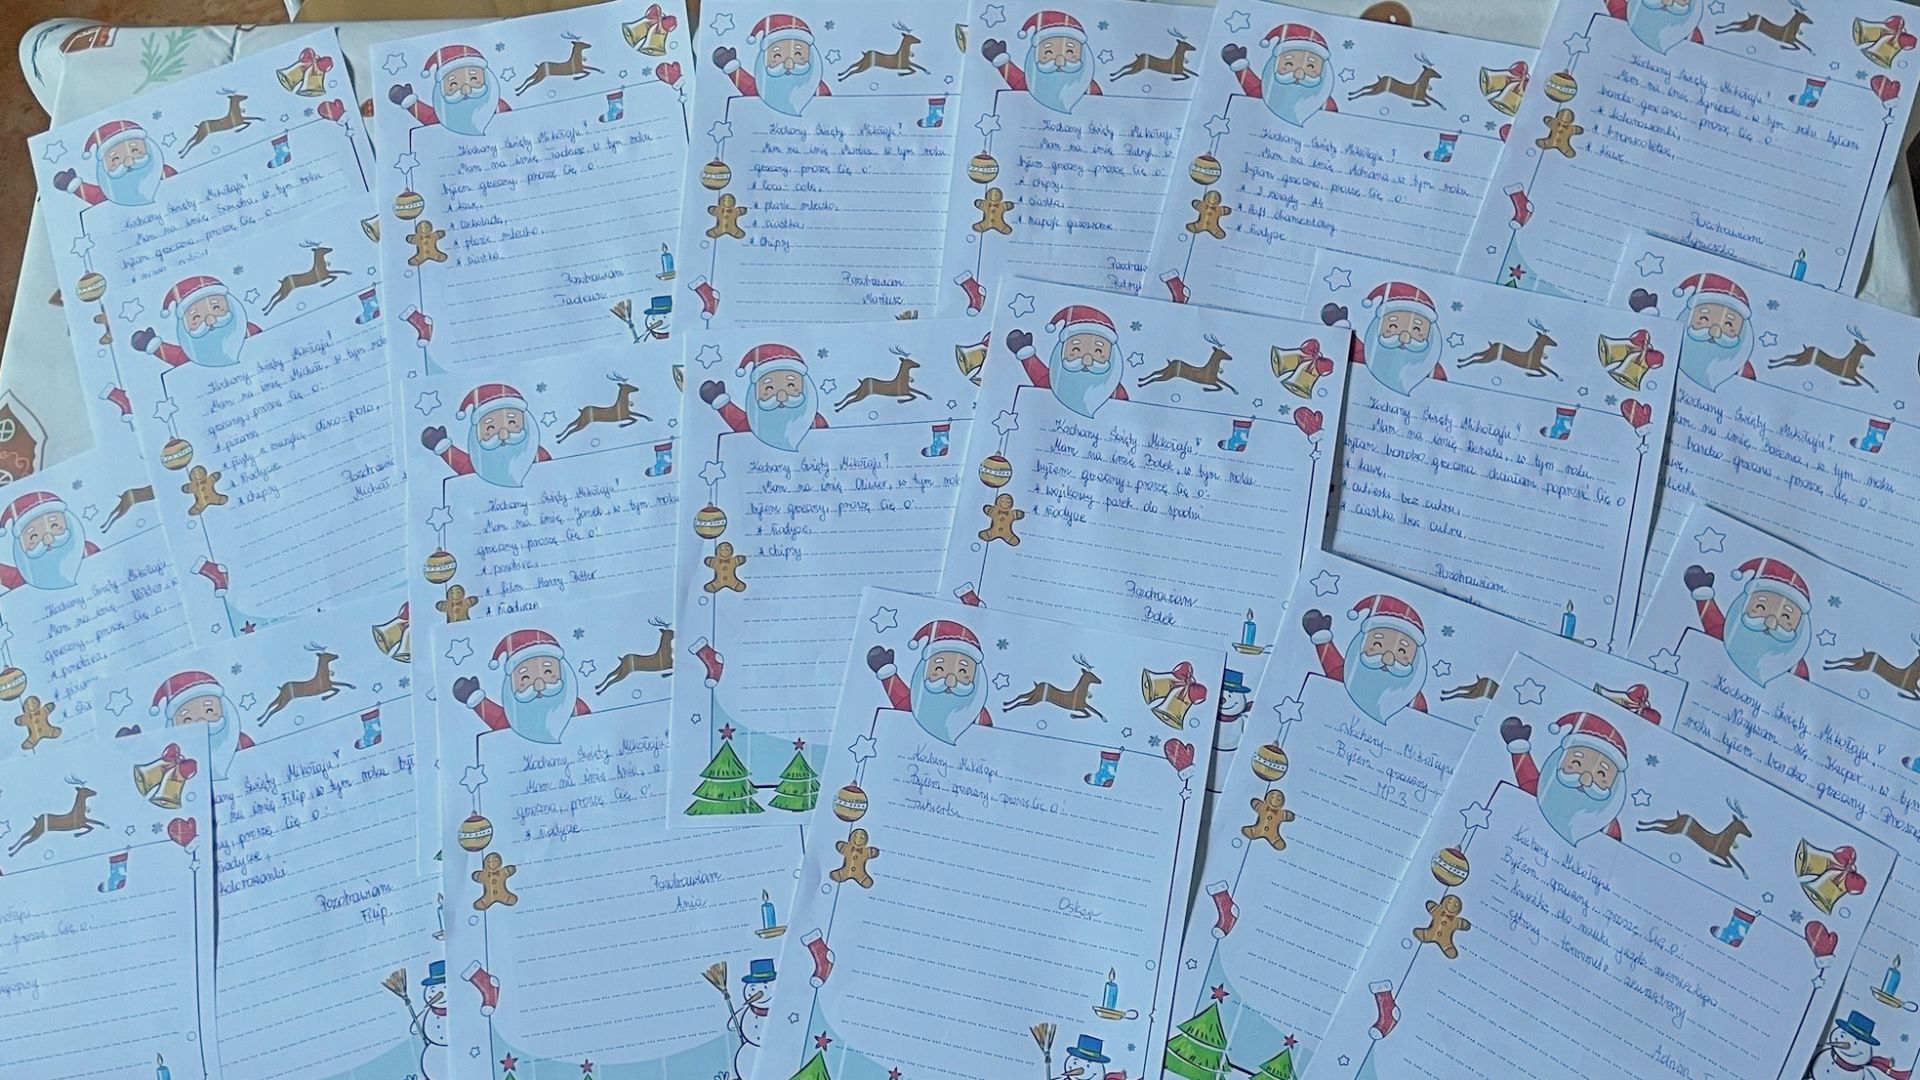 Kochany Święty Mikołaju!
Mam na imię Sandra, w tym roku
byłam grzeczna, proszę Cię o:
Kochany Święty Mikołaju!
Mam na imię Tadeusz, w tym roku
byłem grzeczny, proszę Cię o:
* kawę,
* czekoladę,
* ptasie mleczko,
* ciastka
Pozdrawiam
Tadeusz
Kochany Święty Mikołaju!
Mam na imię Mariusz, w tym roku
grzeczny, proszę Cię o:
* Coca cola,
* ptasie mleczko,
* ciastka
* chipsy
Pozdrawiam
Mariusz
Kochany Święty Mikołaju!
Mam na imię Patryk, w
byłem grzeczny, proszę Cię o:
* chipsy,
* ciastka,
* napoje gazowane
Kochany Święty Mikołaju!
Mam na imię Adriana, w tym roku
byłam grzeczna, proszę Cię o:
* 2 zeszyty A4
* haft diamentowy
* słodycze
Kochany Święty Mikołaju!
Mam na imię Agnieszka, w tym roku byłam
bardzo grzeczna, proszę Cię o:
* kolorowanki,
* bransoletkę,
* kawę
Pozdrawiam
Agnieszka
Kochany Święty Mikołaju!
Mam na imię Michał, w tym roku
grzeczny, proszę Cię o:
* płyty z muzyką disco-polo,
* słodycze
* chipsy
Pozdrawia
Michał
Kochany Święty Mikołaju!
Mam na imię Janek, w tym roku
grzeczny, proszę Cię o:
* film Harry Potter
* słodycze
Kochany Święty Mikołaju!
Mam na imię Oliwier, w tym roku
byłem grzeczny, proszę Cię o:
* słodycze,
* chipsy
Kochany Święty Mikołaju!
Mam na imię Bolek, w tym roku
byłem grzeczny, proszę Cię o:
* wojskowy pasek do spodni
* słodycze
Pozdrawiam
Bolek
Kochany Święty Mikołaju!
Mam na imię Renata, w tym roku
byłam bardzo grzeczna, chciałam poprosić Cię o
* kawę,
* cukierki bez cukru,
* ciastka bez cukru
Pozdrawiam
Kochany Święty Mikołaju!
Mam na imię Bożena, w tym roku
bardzo grzeczna, proszę Cię o:
kawę,
Kochany Święty Mikołaju!
Mam na imię Wiktor, w
grzeczny, proszę Cię o:
Święty Mikołaju!
na imię Filip, w tym roku
proszę Cię o:
słodycze,
kolorowanki
Pozdrawiam
Filip
Kochany Święty Mikołaju!
Mam na imię Ania, w
grzeczna, proszę Cię o:
* słodycze
Pozdrawiam
Ania
Kochany Mikołaju
Byłem grzeczny proszę Cię o:
- cukierki
Oskar
Kochany Mikołaju
Byłem grzeczny
- MP3
Kochany Święty Mikołaju!
Nazywam się Kacper, w tym
roku byłem bardzo grzeczny. Proszę
Kochany Mikołaju
Byłem grzeczny proszę Cię o:
- książka do nauki język
- cyfrowy termometr zewnętrzny
Adrian
proszę Cię o